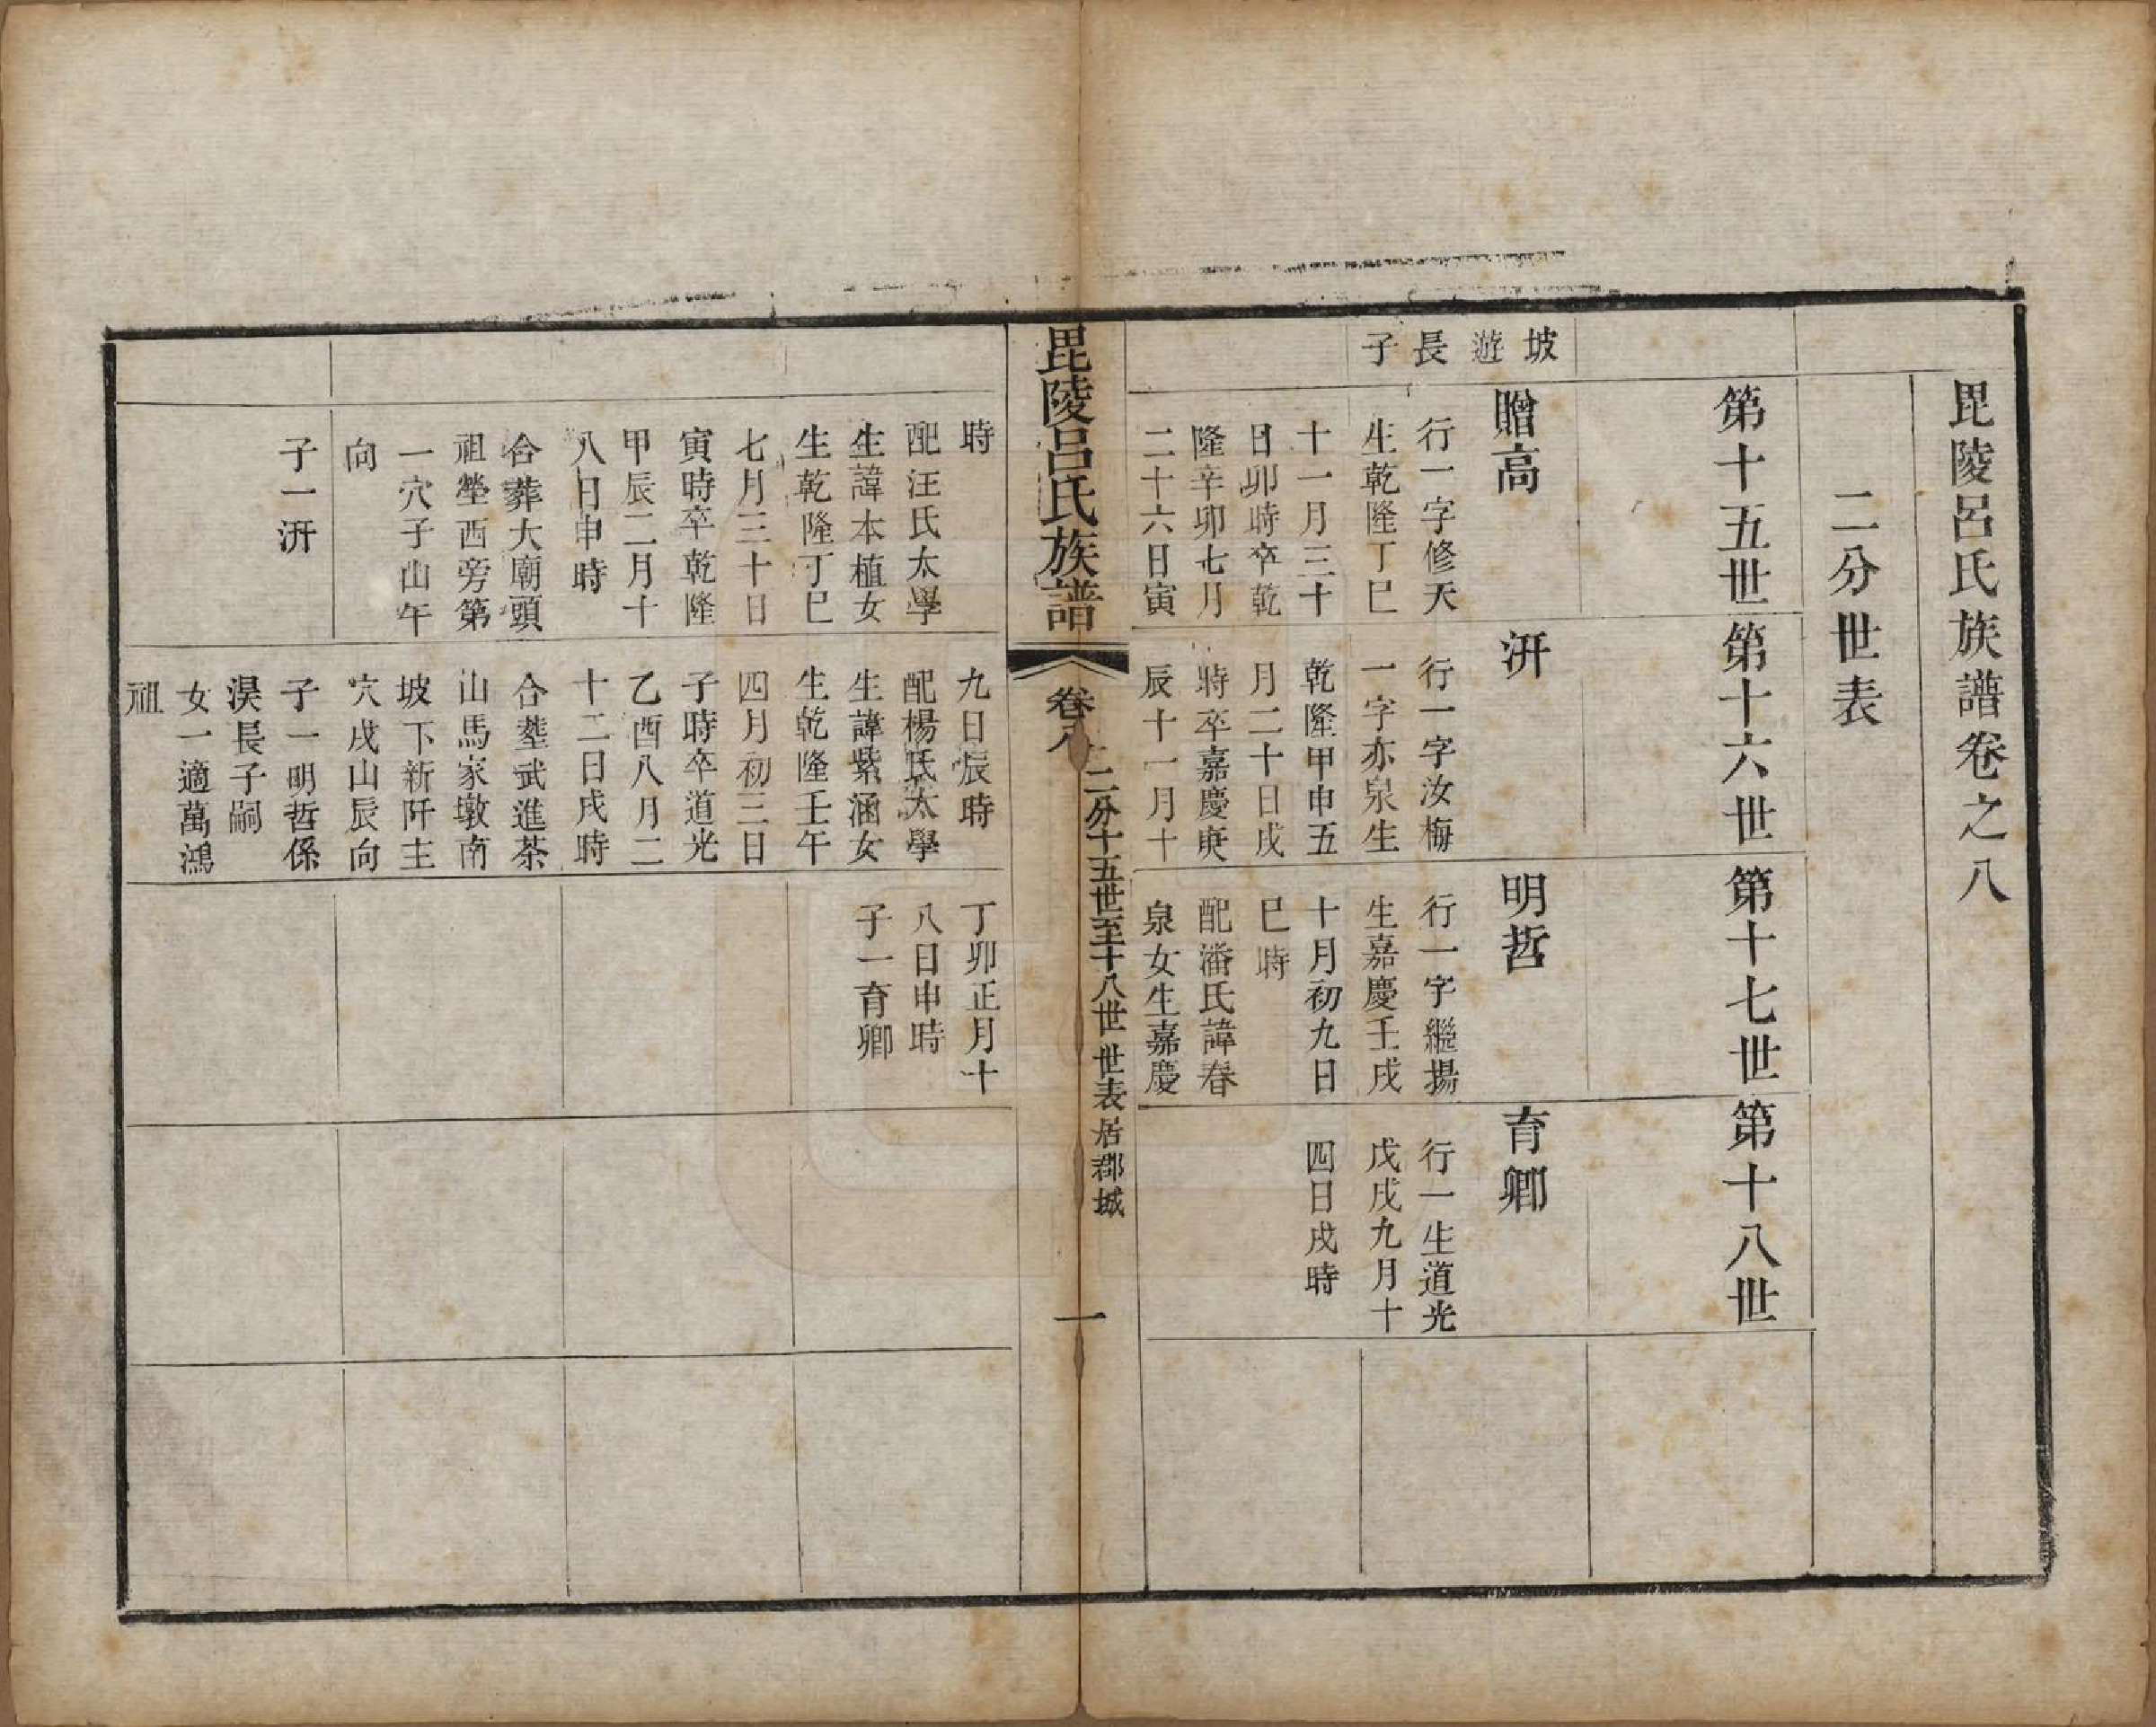 毘陵呂氏族譜卷之八
二分世表
第十五世
第十六世
第十七世
第十八世
坡遊長子
贈高
行一字修天
生乾隆丁巳
十一月三十
日卯時卒乾
隆辛卯七月
二十六日寅
汧
行一字汝梅
一字亦泉生
乾隆甲申五
月二十日戌
時卒嘉慶庚
辰十一月十
明哲
行一字繼揚
生嘉慶壬戌
十月初九日
巳時
配潘氏諱春
泉女生嘉慶
育卿
行一生道光
戊戌九月十
四日戌時
毘陵呂氏族譜
卷八
二分十五世至十八世 世表 居郡城
一
時
配汪氏太學
生諱本植女
生乾隆丁巳
七月三十日
寅時卒乾隆
甲辰二月十
八日申時
合葬大廟頭
祖塋西旁第
一穴子山午
向
子一汧
九日辰時
配楊氏太學
生諱紫涵女
生乾隆壬午
四月初三日
子時卒道光
乙酉八月二
十二日戌時
合塟武進茶
山馬家墩南
坡下新阡主
穴戌山辰向
子一明哲係
淏長子嗣
女一適萬鴻
祖
丁卯正月十
八日申時
子一育卿